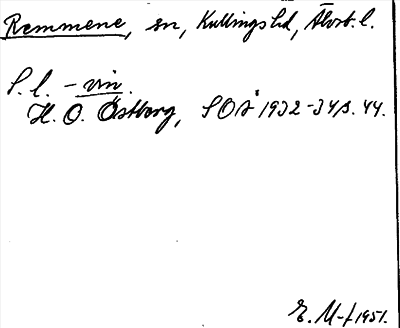 Remmene, sn, Kullings hd, Älvsb. l.
S. l. - vin.
H. O. Östberg, SOÅ 1932-34 s. 44.
E. M-f 1951.